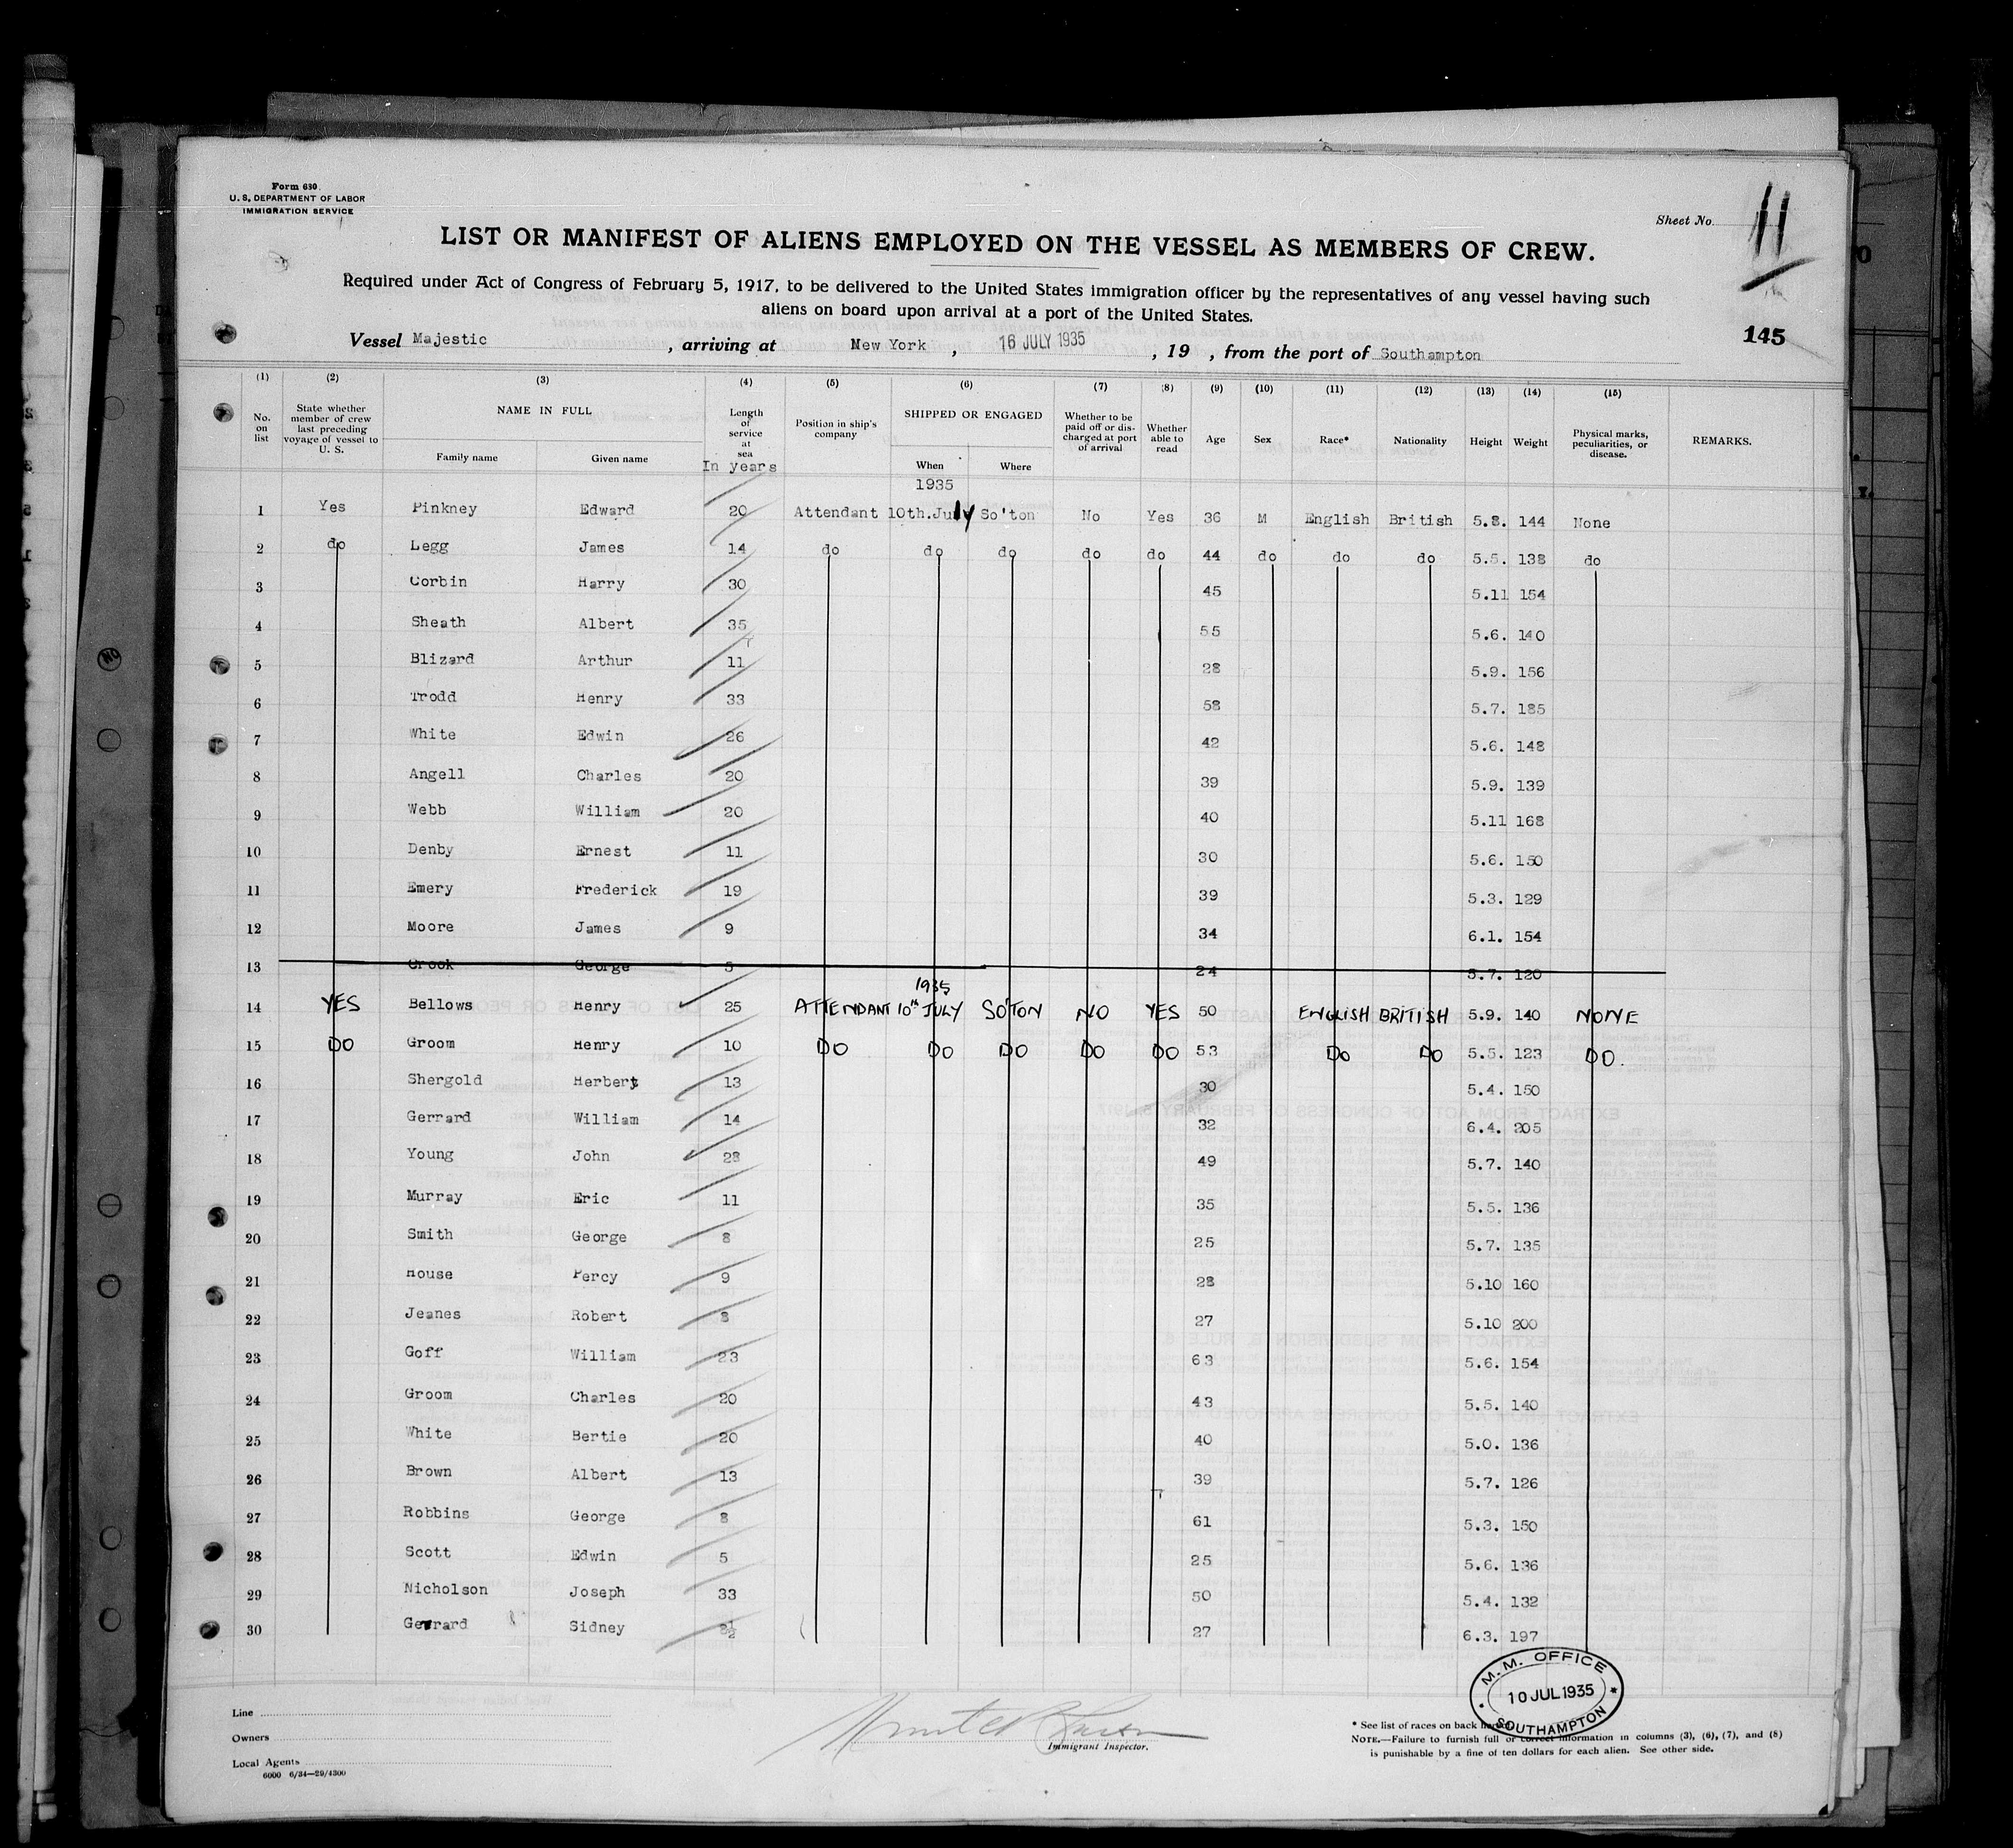 Form 630
U. S. DEPARTMENT OF LABOR
IMMIGRATION SERVICE
Sheet No. 11
LIST OR MANIFEST OF ALIENS EMPLOYED ON THE VESSEL AS MEMBERS OF CREW.
Required under Act of Congress of February 5, 1917, to be delivered to the United States immigration officer by the representatives of any vessel having such
aliens on board upon arrival at a port of the United States.
145
Vessel Majestic , arriving at New York , 16 JULY 1935 , 19 , from the port of Southampton
(1) (2) (3) (4) (5) (6) (7) (8) (9) (10) (11) (12) (13) (14) (15)
No. on list
State whether member of crew last preceding voyage of vessel to U. S.
NAME IN FULL
Family name
Given name
Length of service at sea
In years
Position in ship's company
SHIPPED OR ENGAGED
When
Where
Whether to be paid off or discharged at port of arrival
Whether able to read
Age
Sex
Race*
Nationality
Height
Weight
Physical marks, peculiarities, or disease.
REMARKS.
1935
1 Yes Pinkney Edward 20 Attendant 10th.July So'ton No Yes 36 M English British 5.8. 144 None
2 do Legg James 14 do do do do do 44 do do do 5.5. 138 do
3 Corbin Harry 30 45 5.11 154
4 Sheath Albert 35 55 5.6. 140
5 Blizard Arthur 11 28 5.9. 156
6 Trodd Henry 33 58 5.7. 185
7 White Edwin 26 42 5.6. 148
8 Angell Charles 20 39 5.9. 139
9 Webb William 20 40 5.11 168
10 Denby Ernest 11 30 5.6. 150
11 Emery Frederick 19 39 5.3. 129
12 Moore James 9 34 6.1. 154
13 Crook George 5 24 5.7. 120
1935
14 YES Bellows Henry 25 ATTENDANT 10th JULY SO'TON NO YES 50 ENGLISH BRITISH 5.9. 140 NONE
15 DO Groom Henry 10 DO DO DO DO DO 53 DO DO 5.5. 123 DO.
16 Shergold Herbert 13 30 5.4. 150
17 Gerrard William 14 32 6.4. 205
18 Young John 28 49 5.7. 140
19 Murray Eric 11 35 5.5. 136
20 Smith George 8 25 5.7. 135
21 House Percy 9 28 5.10 160
22 Jeanes Robert 8 27 5.10 200
23 Goff William 23 63 5.6. 154
24 Groom Charles 20 43 5.5. 140
25 White Bertie 20 40 5.0. 136
26 Brown Albert 13 39 5.7. 126
27 Robbins George 8 61 5.3. 150
28 Scott Edwin 5 25 5.6. 136
29 Nicholson Joseph 33 50 5.4. 132
30 Gerrard Sidney 2½ 27 6.3. 197
M. M. OFFICE
10 JUL 1935
SOUTHAMPTON
Line
Owners
Local Agents
6000 6/34—29/4300
Immigrant Inspector.
* See list of races on back
NOTE.—Failure to furnish full or correct information in columns (3), (6), (7), and (8)
is punishable by a fine of ten dollars for each alien. See other side.